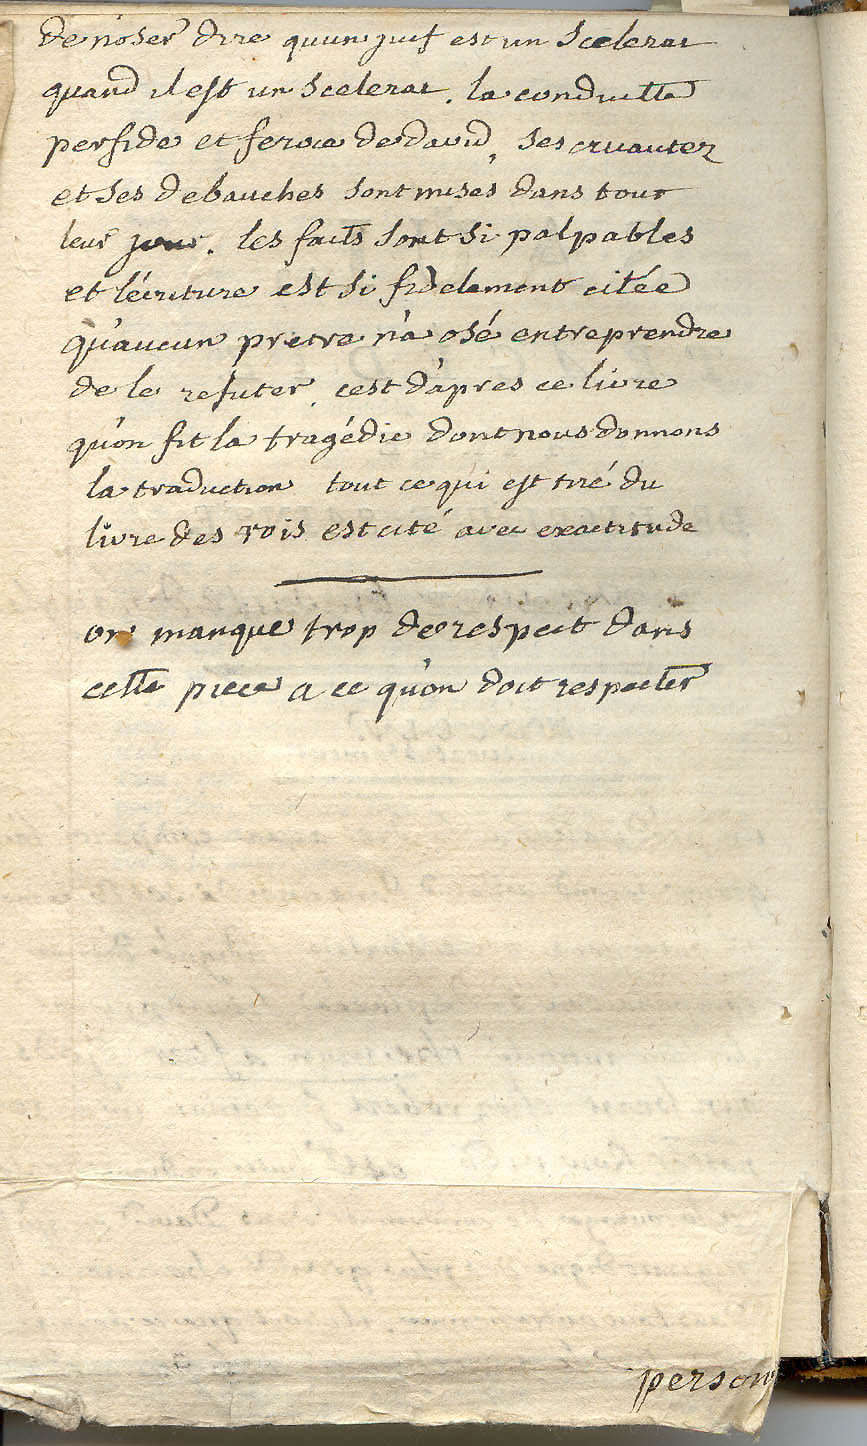 de n'oser dire qu'un juif est un Scelerat
quand il est un Scelerat. la conduitte
perfide et feroce de david, ses cruautez
et ses debauches sont mises dans tout
leur jour. les faits sont si palpables
et l'écriture est si fidelement citée
qu'aucun pretre n'a osé entreprendre
de le refuter. c'est d'apres ce livre
qu'on fit la tragédie dont nous donnons
la traduction tout ce qui est tiré du
livre des rois est cité avec exactitude
on manque trop de respect dans
cette piece a ce qu'on doit respecter
person